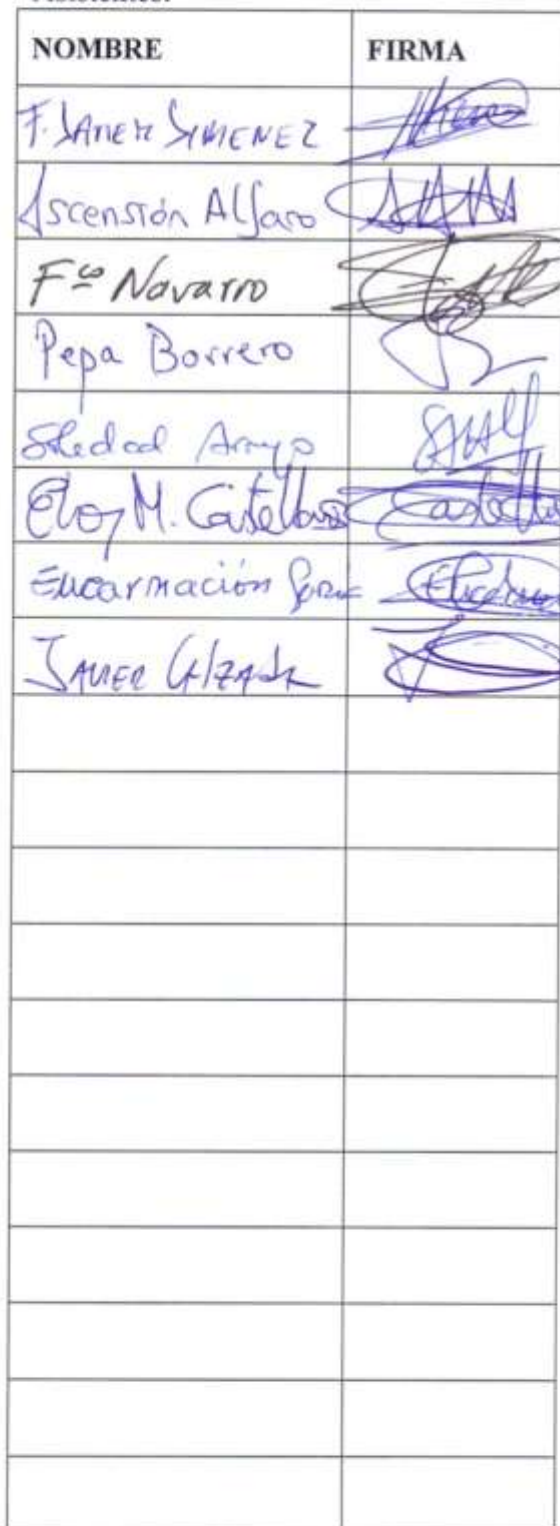 Asistentes:
NOMBRE FIRMA
F. JAVIER JIMENEZ
Ascensión Alfaro
Fco Navarro
Pepa Borrero
Soledad Arroyo
Eloy M. Castellanos
Encarnación Soria
JAVIER